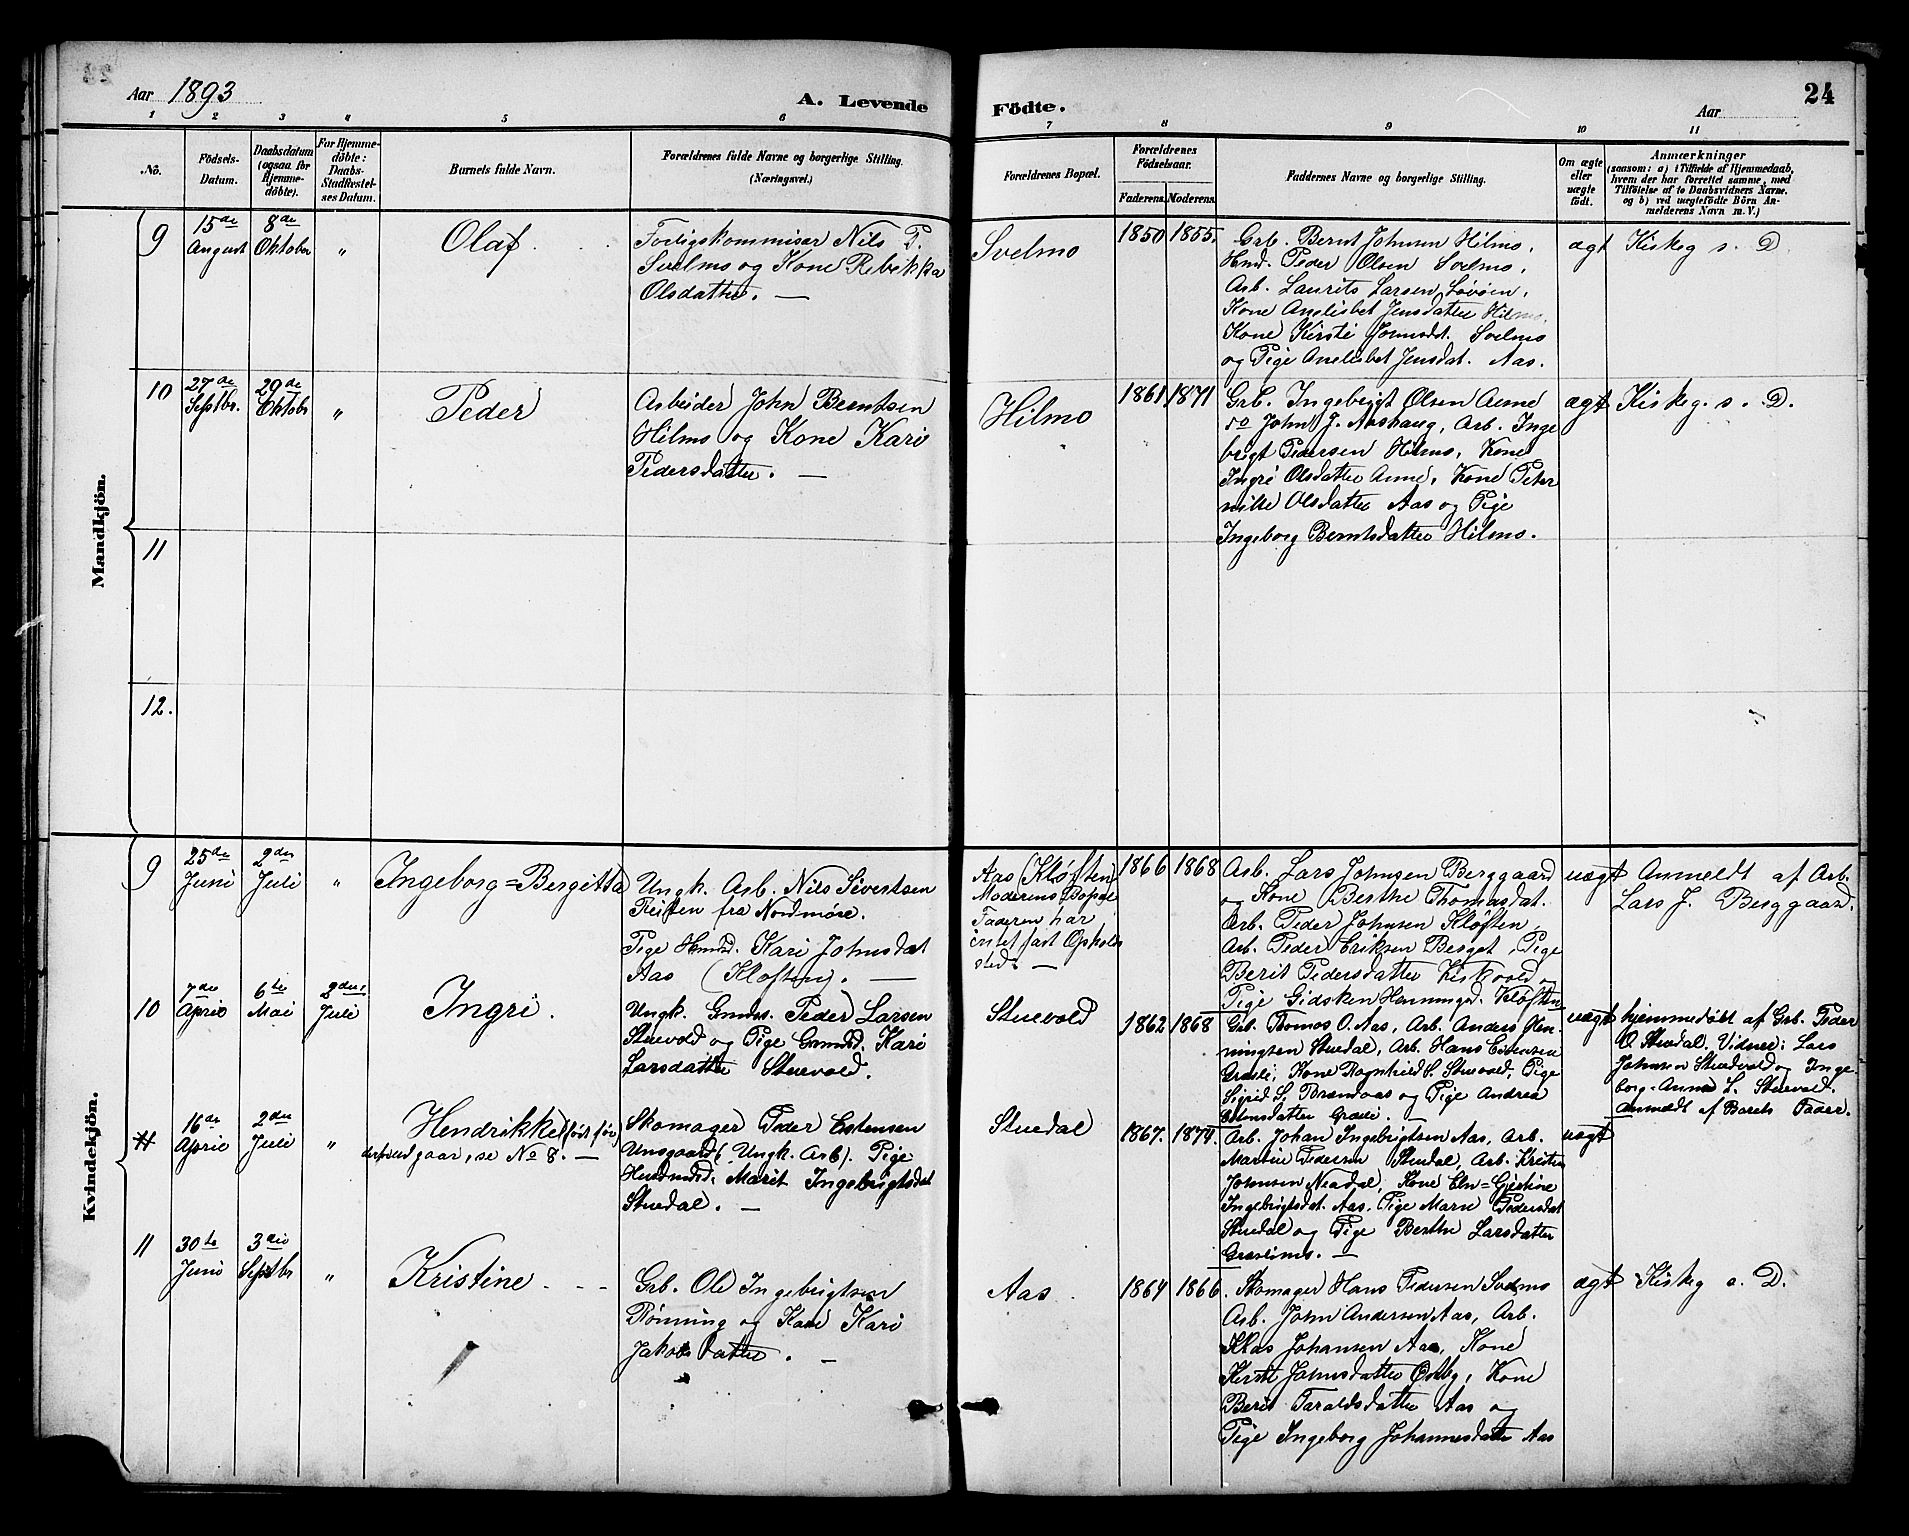 Aar 1893
A. Levende
Födte.
Aar
24
1 2 3 4 5 6 7 8 9 10 11
No.
Födsels-Datum.
Daabsdatum (ogsaa for Hjemmedöbte).
For Hjemmedöbte: Daabs-Stadfæstelses Datum.
Barnets fulde Navn.
Forældrenes fulde Navne og borgerlige Stilling.
(Næringsvei.)
Forældrenes Bopæl.
Forældrenes Fødselsaar.
Faderens. Moderens.
Faddernes Navne og borgerlige Stilling.
Om ægte eller uægte födt.
Anmærkninger
(saasom: a) i Tilfælde af Hjemmedaab,
hvem der har forrettet samme, med
Tilföielse af to Daabsvidners Navne.
og b) ved uægtefödte Börn An-
melderens Navn m. V.)
Mandkjön.
9
15de August
8de Oktober
"
Olaf
Forligskommisær Nils P.
Svelmo og Kone Rebekka
Olsdatter. —
Svelmo
1850 1855.
Grb. Bernt Johnsen Hilmo,
Hmd. Peder Olsen Svelmo,
Arb. Laurits Larsen Løvøen,
Kone Anelisbet Jensdatter Hilmo.
Kone Kirsti Jonsdt. Svelmo
og Pige Anelisbet Jensdat. Aas.
ægt
Kiskeg s. D.
10
27de Septbr.
29de Oktobr
"
Peder
Arbeider John Berntsen
Hilmo og Kone Kari
Pedersdatter. —
Hilmo
1861 1871
Grb. Ingebrigt Olsen Aune
so John J. Aashaug, Arb. Inge
brigt Pedersen Hilmo, Kone
Ingri Olsdatter Aune, Kone Peter
nille Olsdatter Aas og Pige
Ingeborg Berntsdatter Hilmo.
ægt
Kiskeg. s. D.
11
12.
Kvindekjön.
9
25de Juni
2den Juli
"
Ingeborg=Bergitta
Ungk. Arb. Nils Sivertsen
Reiten fra Nordmøre.
Pige Hmd. Kari Johnsdat
Aas (Kløften). —
Aas (Kløften)
Moderens Bopæl
Faderen har
intet fast Opholds
sted. —
1866 1868
Arb. Lars Johnsen Berggaard
og Kone Berthe Thomasdat.
Arb. Peder Johnsen Kløften,
Arb. Peder Eriksen Berget, Pige
Berit Pedersdatter Kiskvold og
Pige Gidsken Henningsd. Kløften
uægt
Anmeldt af Arb.
Lars J. Berggaard.
10
7de April
6te Mai
2den Juli
Ingri.
Ungk. Gmds. Peder Larsen
Stuevold og Pige Grmd. Kari
Larsdatter Stuevold.
Stuevold
1862 1868
Grb. Thomas O. Aas, Arb. Anders Hen-
ningsen Stuedal, Arb. Hans Estensen
Græsli, Kone Ragnhild S. Stuevold, Pige
Sigrid L. Brændaas og Pige Andrea
Estensdatter Græsli.
uægt
hjemmedøbt af Grb. Peder
O. Stuedal. Vidner: Lars
Johnsen Stuedvold og Inge
borg-Anna L. Stuevold.
Anmeldt af Barets Fader.
11
16de April
2den Juli
"
Hendrikke
gaar, se No 8. —
Skomager Peder Estensen
Unsgaard (Ungk. Arb). Pige
Marit Ingebrigtsdat
Stuedal. —
Stuedal
1867. 1874.
Arb. Johan Ingebrigtsen Aas, Arb.
Martin Pedersen Stuedal, Arb. Kristen
Johnsen Neadal, Kone Eln=Gjertine
Ingebrigtsdat. Aas. Pige Marie Pedersdat
Stuedal og Pige Berthe Larsdatter
Græslimo. —
uægt
11
30te Juni
3die Septbr
"
Kristine
Grb. Ole Ingebrigtsen
Rønning og Kone Kari
Jakobsdatter. —
Aas
1864 1866
Skomager Hans Pedersen Svelmo
Arb. John Andersen Aas, Arb.
Klas Johansen Aas, Kone
Kirsti Johnsdatter Østby, Kone
Berit Taraldsdatter Aas og
Pige Ingeborg Johannesdatter Aas
ægt
Kiskeg s. D.